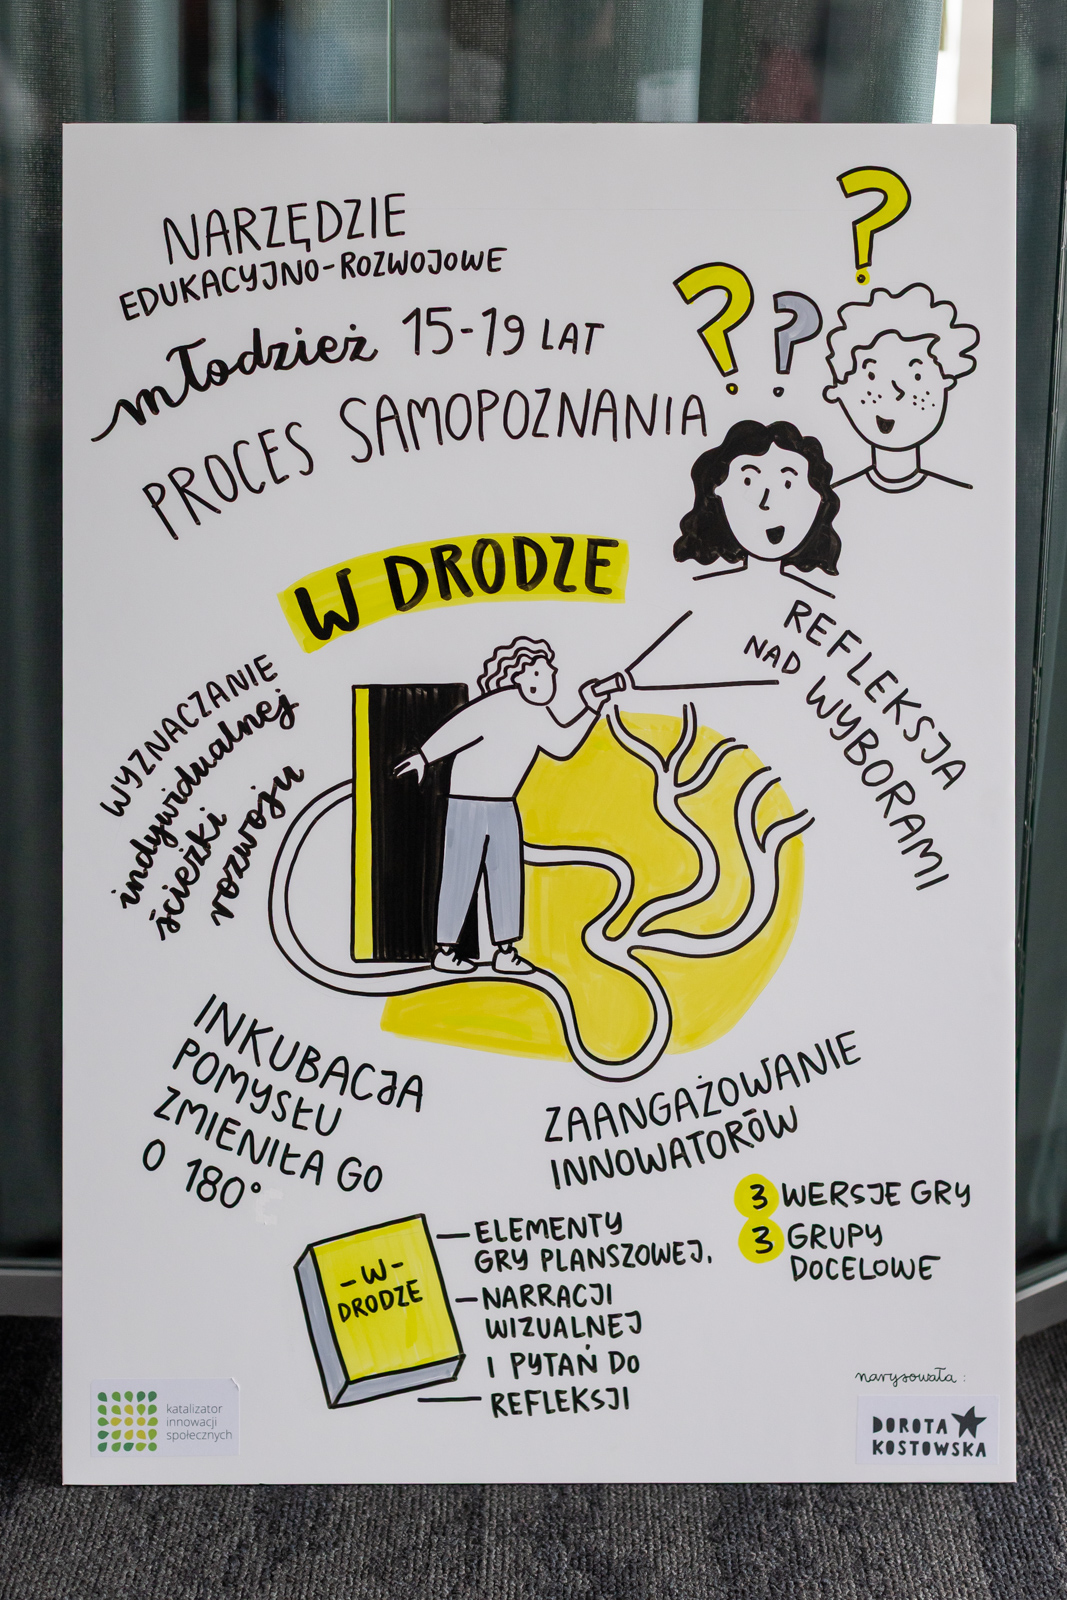 NARZĘDZIE
EDUKACYJNO-ROZWOJOWE
młodzież 15-19 LAT
PROCES SAMOPOZNANIA
?
?
?
W DRODZE
REFLEKSJA
NAD WYBORAMI
WYZNACZANIE
indywidualnej
ścieżki
rozwoju
INKUBACJA
POMYSŁU
ZMIENIŁA GO
O 180°
ZAANGAŻOWANIE
INNOWATORÓW
3 WERSJE GRY
3 GRUPY
DOCELOWE
-W-
DRODZE
— ELEMENTY
GRY PLANSZOWEJ,
— NARRACJI
WIZUALNEJ
I PYTAŃ DO
— REFLEKSJI
katalizator
innowacji
społecznych
narysowała:
DOROTA
KOSTOWSKA